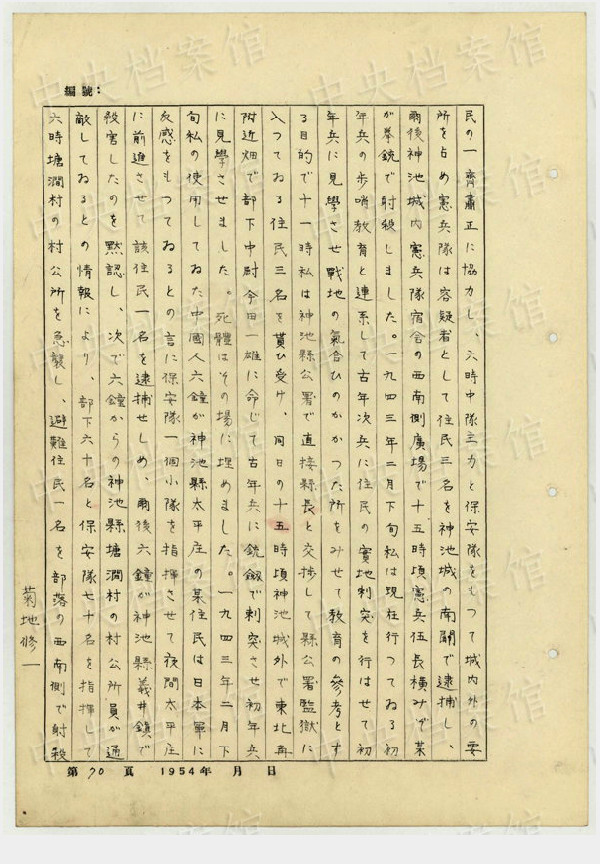 編號：
民の一齊肅正に協力し、六時中隊主力と保安隊をもつて城内外の要
所を占め憲兵隊は容疑者として住民三名を神池城の南関で逮捕し、
爾後神池城内憲兵隊宿舎の西南側廣場で十五時頃憲兵伍長横みぞ某
が拳銃で射殺しました。一九四三年二月下旬私は現在行つてゐる初
年兵の歩哨教育と連系して古年次兵に住民の實地刺突を行はせて初
年兵に見學させ戰地の氣合ひのかかつた所をみせて教育の參考とす
る目的で十一時私は神池縣公署で直接縣長と交捗して縣公署監獄に
入つてゐる住民三名を貰ひ受け、同日の十五時頃神池城外で東北
附近畑で部下中尉今田一雄に命じて古年兵に銃劔で刺突させ初年兵
に見學させました。死體はその場に埋めました。一九四三年二月下
旬私の使用してゐた中國人六鐘が神池縣太平庄の某住民は日本軍に
反感をもつてゐるとの言に保安隊一個小隊を指揮させて夜間太平庄
に前進させて該住民一名を逮捕せしめ、爾後六鐘が神池縣義井鎮で
殺害したのを黙認し、次で六鐘からの神池縣塘澗村の村公所員が通
敵してゐるとの情報により、部下六十名と保安隊七十名を指揮して
六時塘澗村の村公所を急襲し、避難住民一名を部落の西南側で射殺
菊地修一
第 70 頁 1954年 月 日
中央档案馆